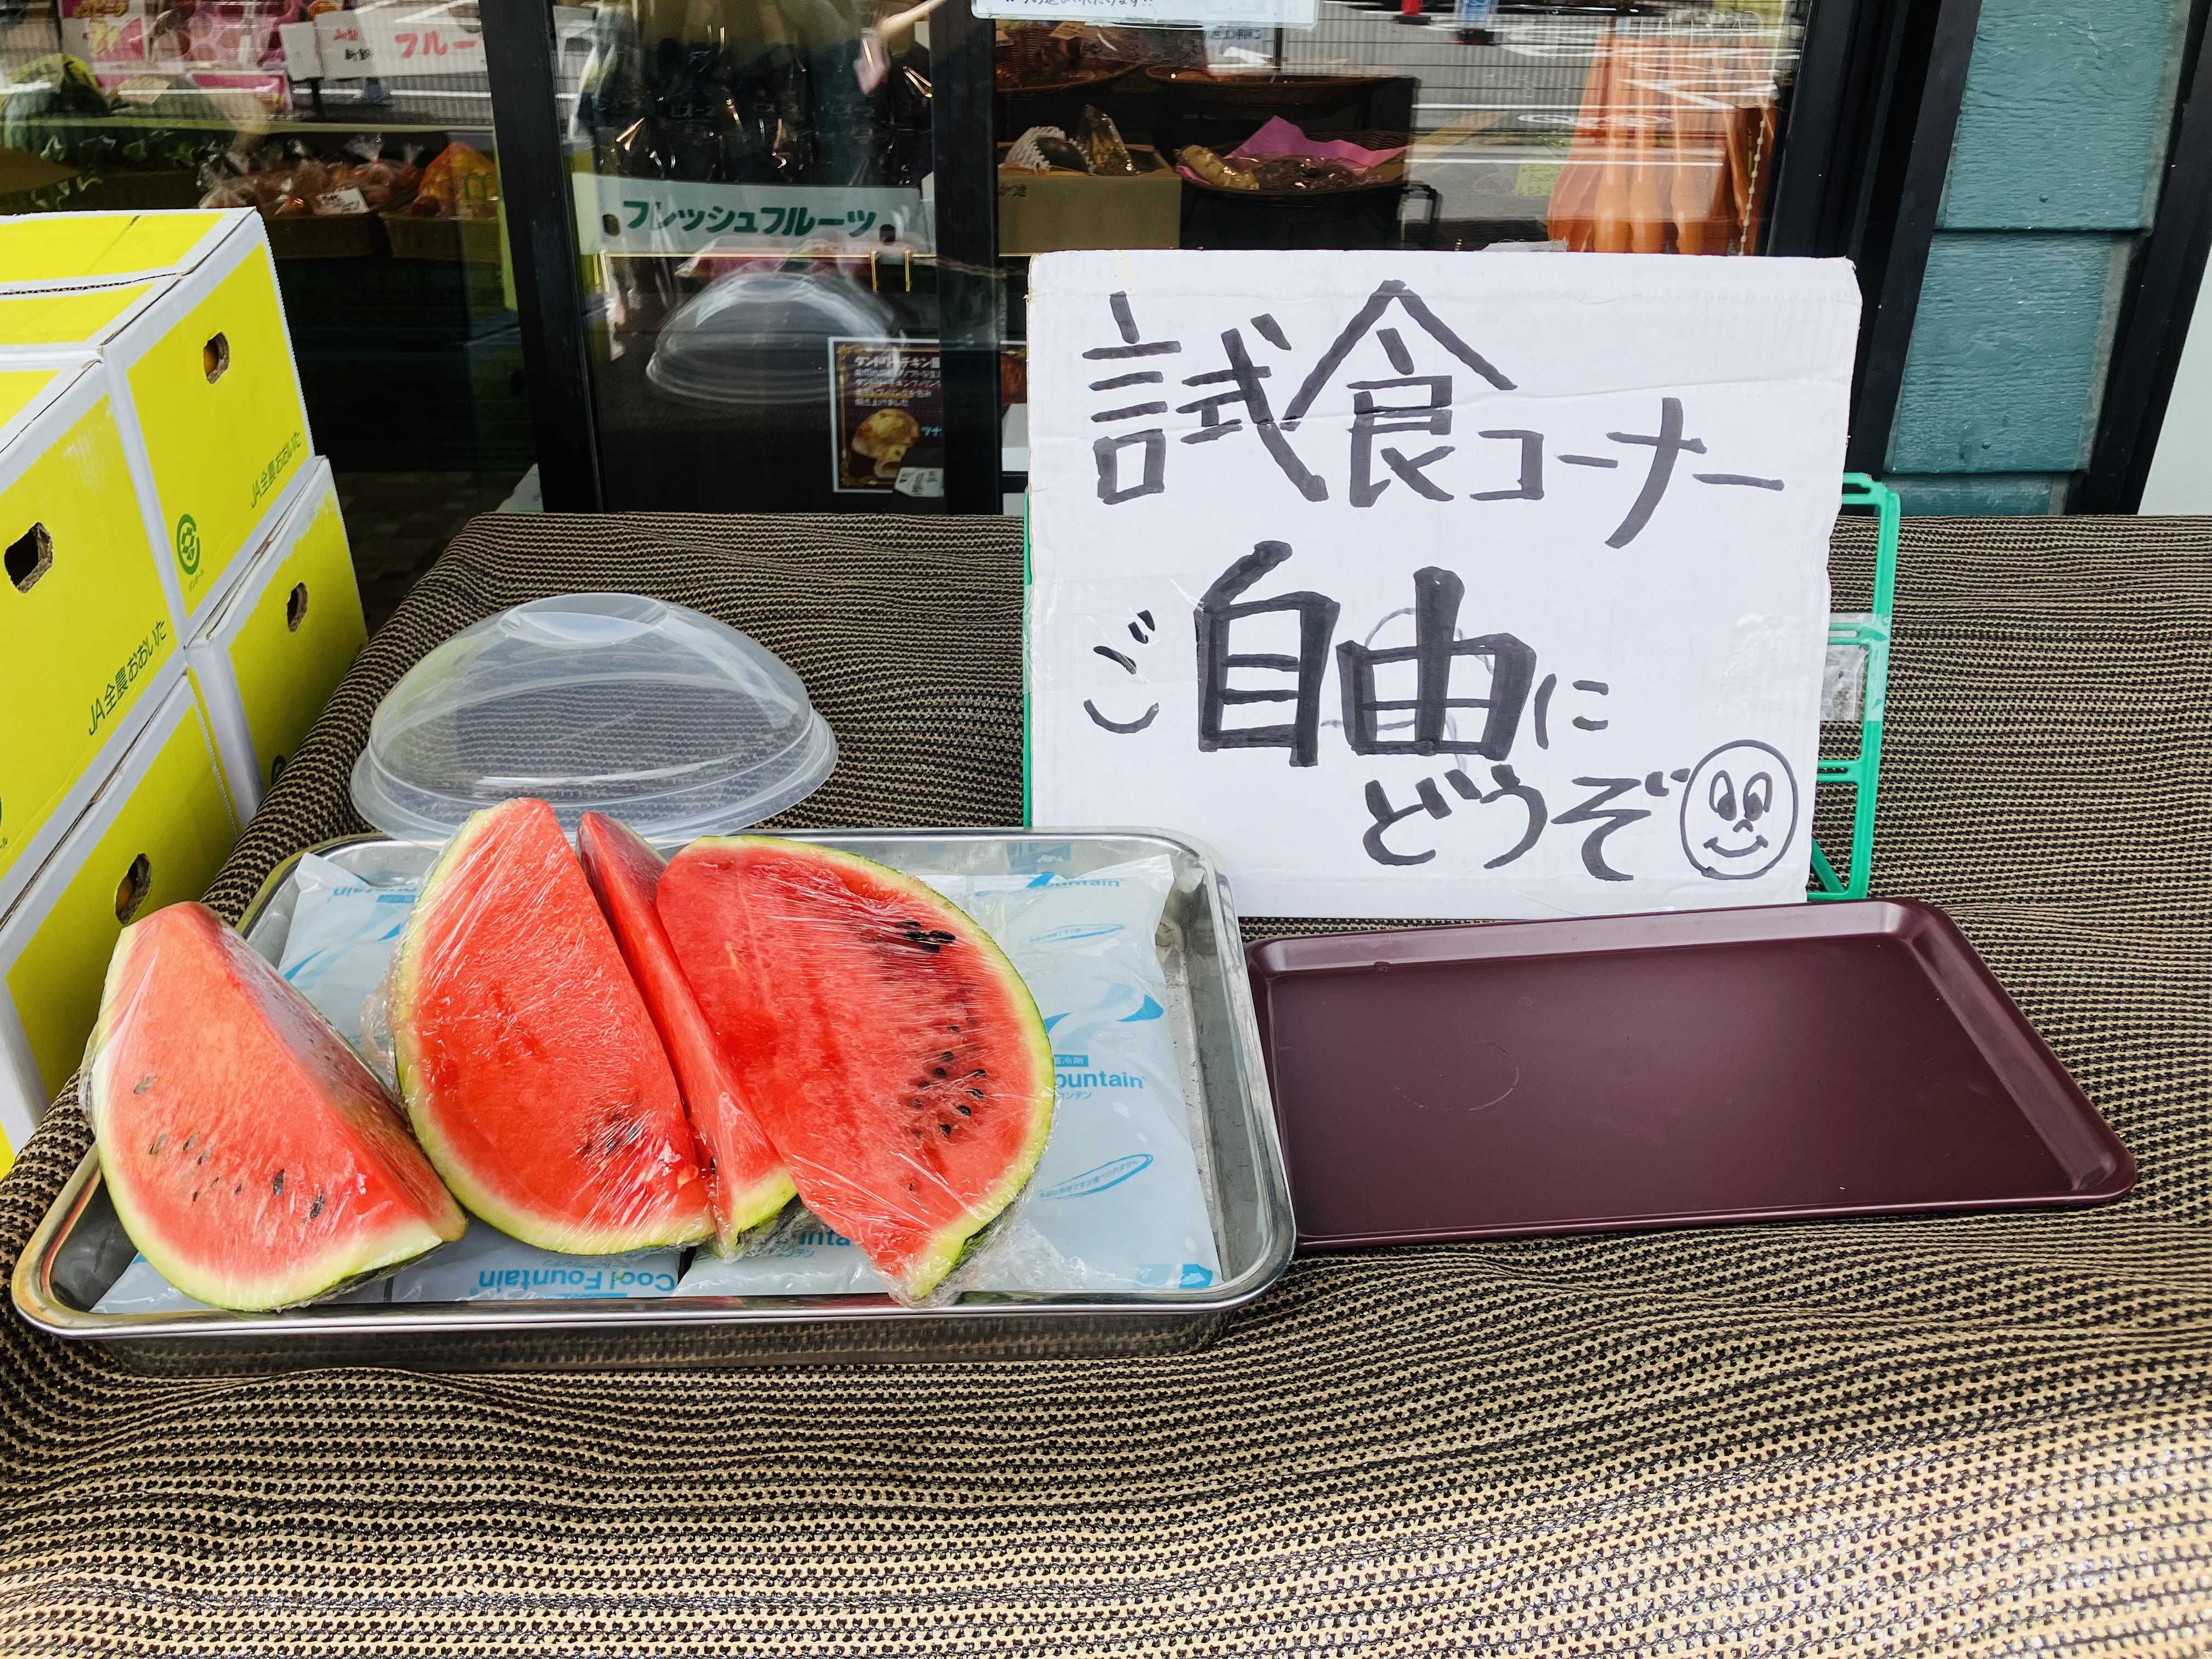 フルー
フレッシュフルーツ
タンドリーチキン
試食コーナー
ご自由に
どうぞ
JA全農おおいた
JA全農おおいた
Fountain
Cool Fountain